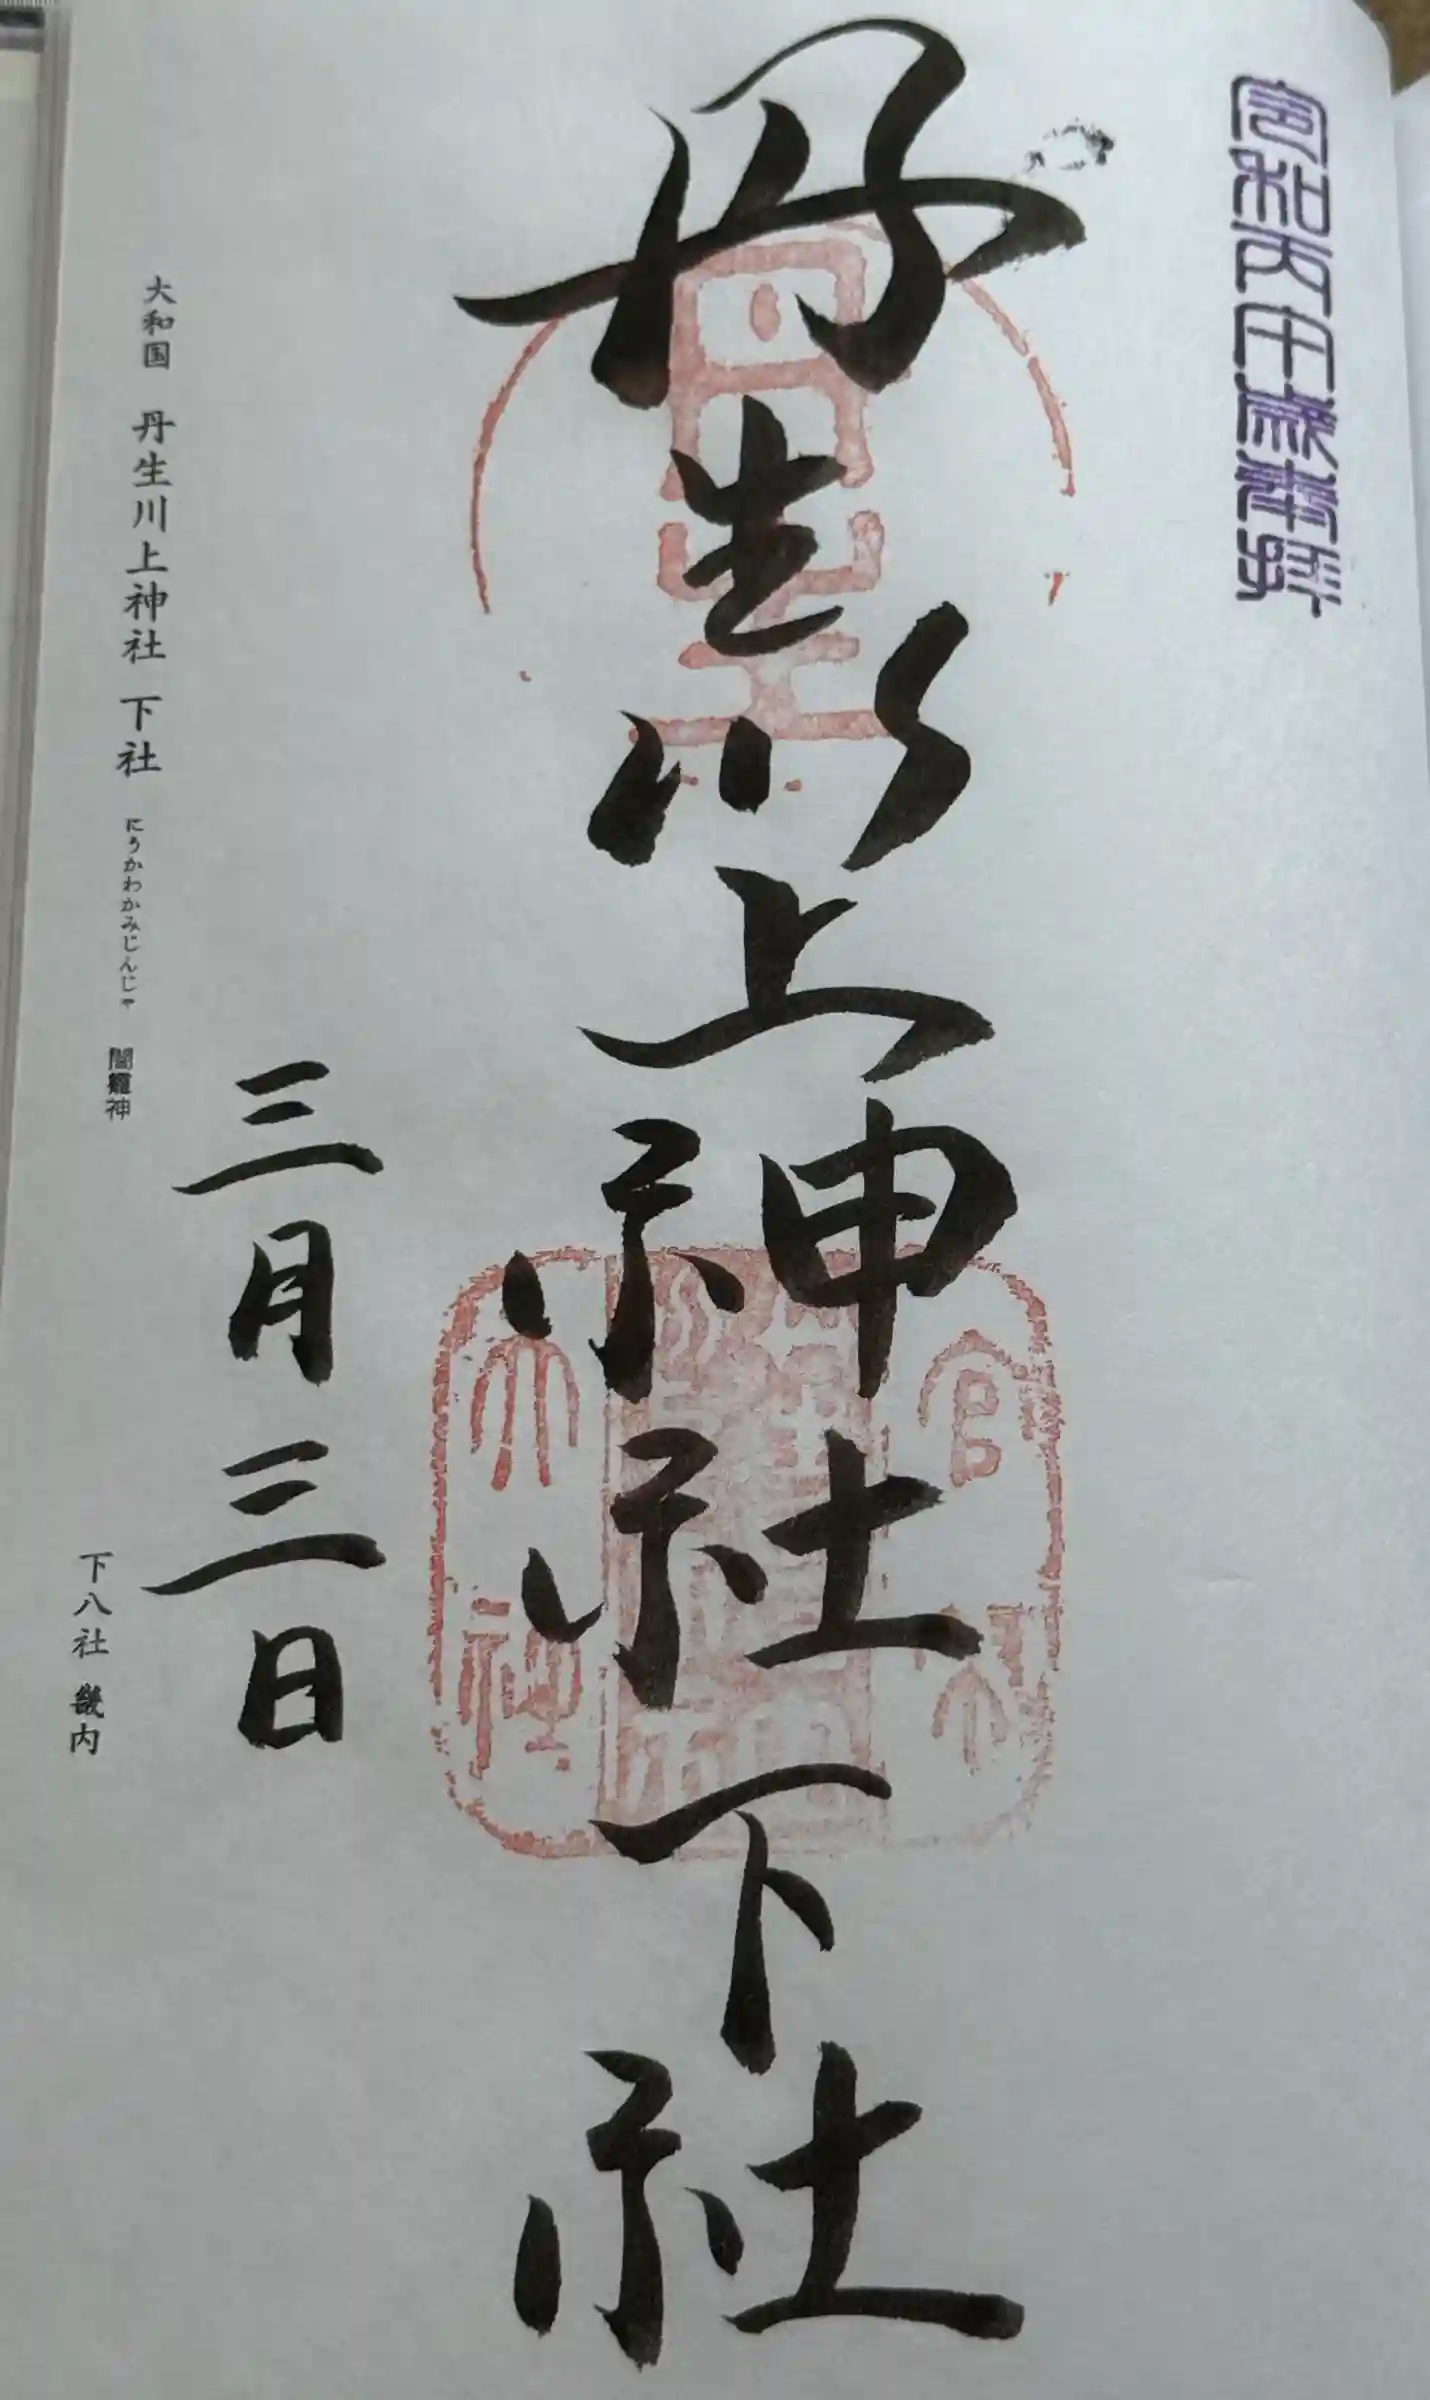 令和丙午歳奉拝
丹生川上神社下社
三月三日
大和国 丹生川上神社 下社 にうかわかみじんじゃ 闇龗神
下八社 畿内